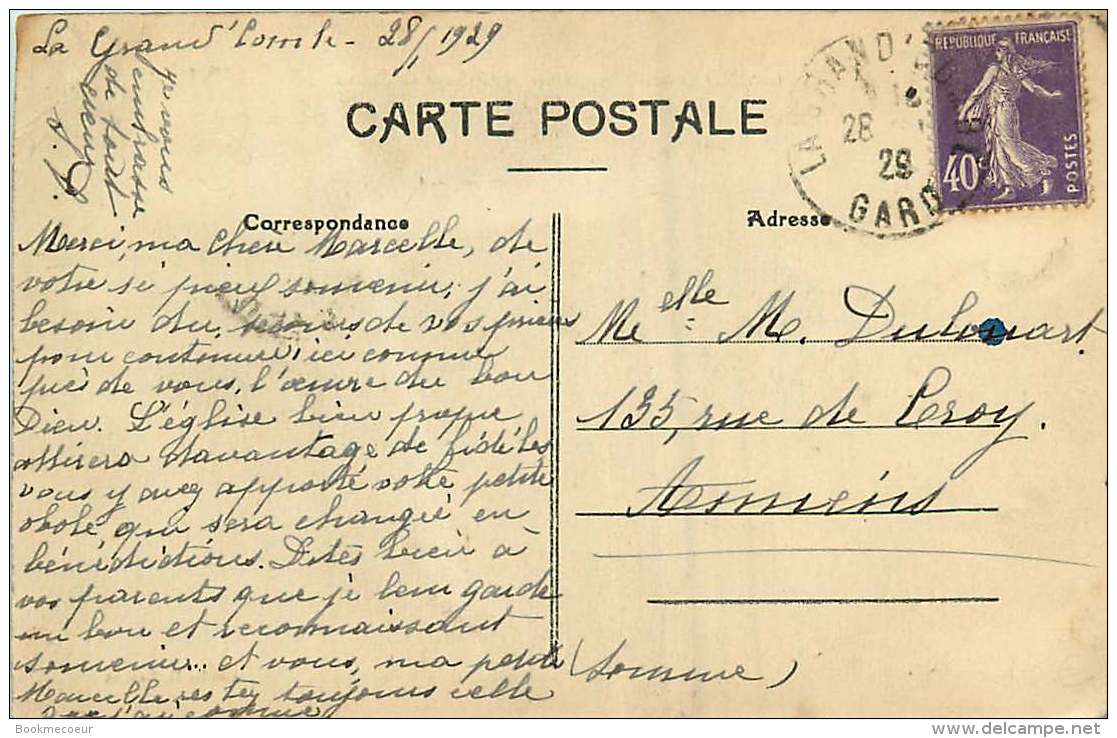 La Grand'Combe - 28/1 1929
Je vous
embrasse
de tout
cœur
CARTE POSTALE
REPUBLIQUE FRANÇAISE
40c
POSTES
LA GRAND'
28
29
GARD
Correspondance
Adresse
Merci, ma chère Marcelle, de
votre si pieux souvenir, j'ai
besoin du secours de vos prières
pour continuer, ici comme
près de vous, l'œuvre du bon
Dieu. L'église bien propre
attirera davantage de fidèles
vous y avez apporté votre petite
obole qui sera changée en
bénédictions. Dites bien à
vos parents que je leur garde
un bon et reconnaissant
souvenir.. et vous, ma petite
Marcelle, restez toujours celle
que j'ai connue
Melle M. Dulouart.
135, rue de Croy.
Amiens
(Somme)
Bookmecoeur
delcampe.net